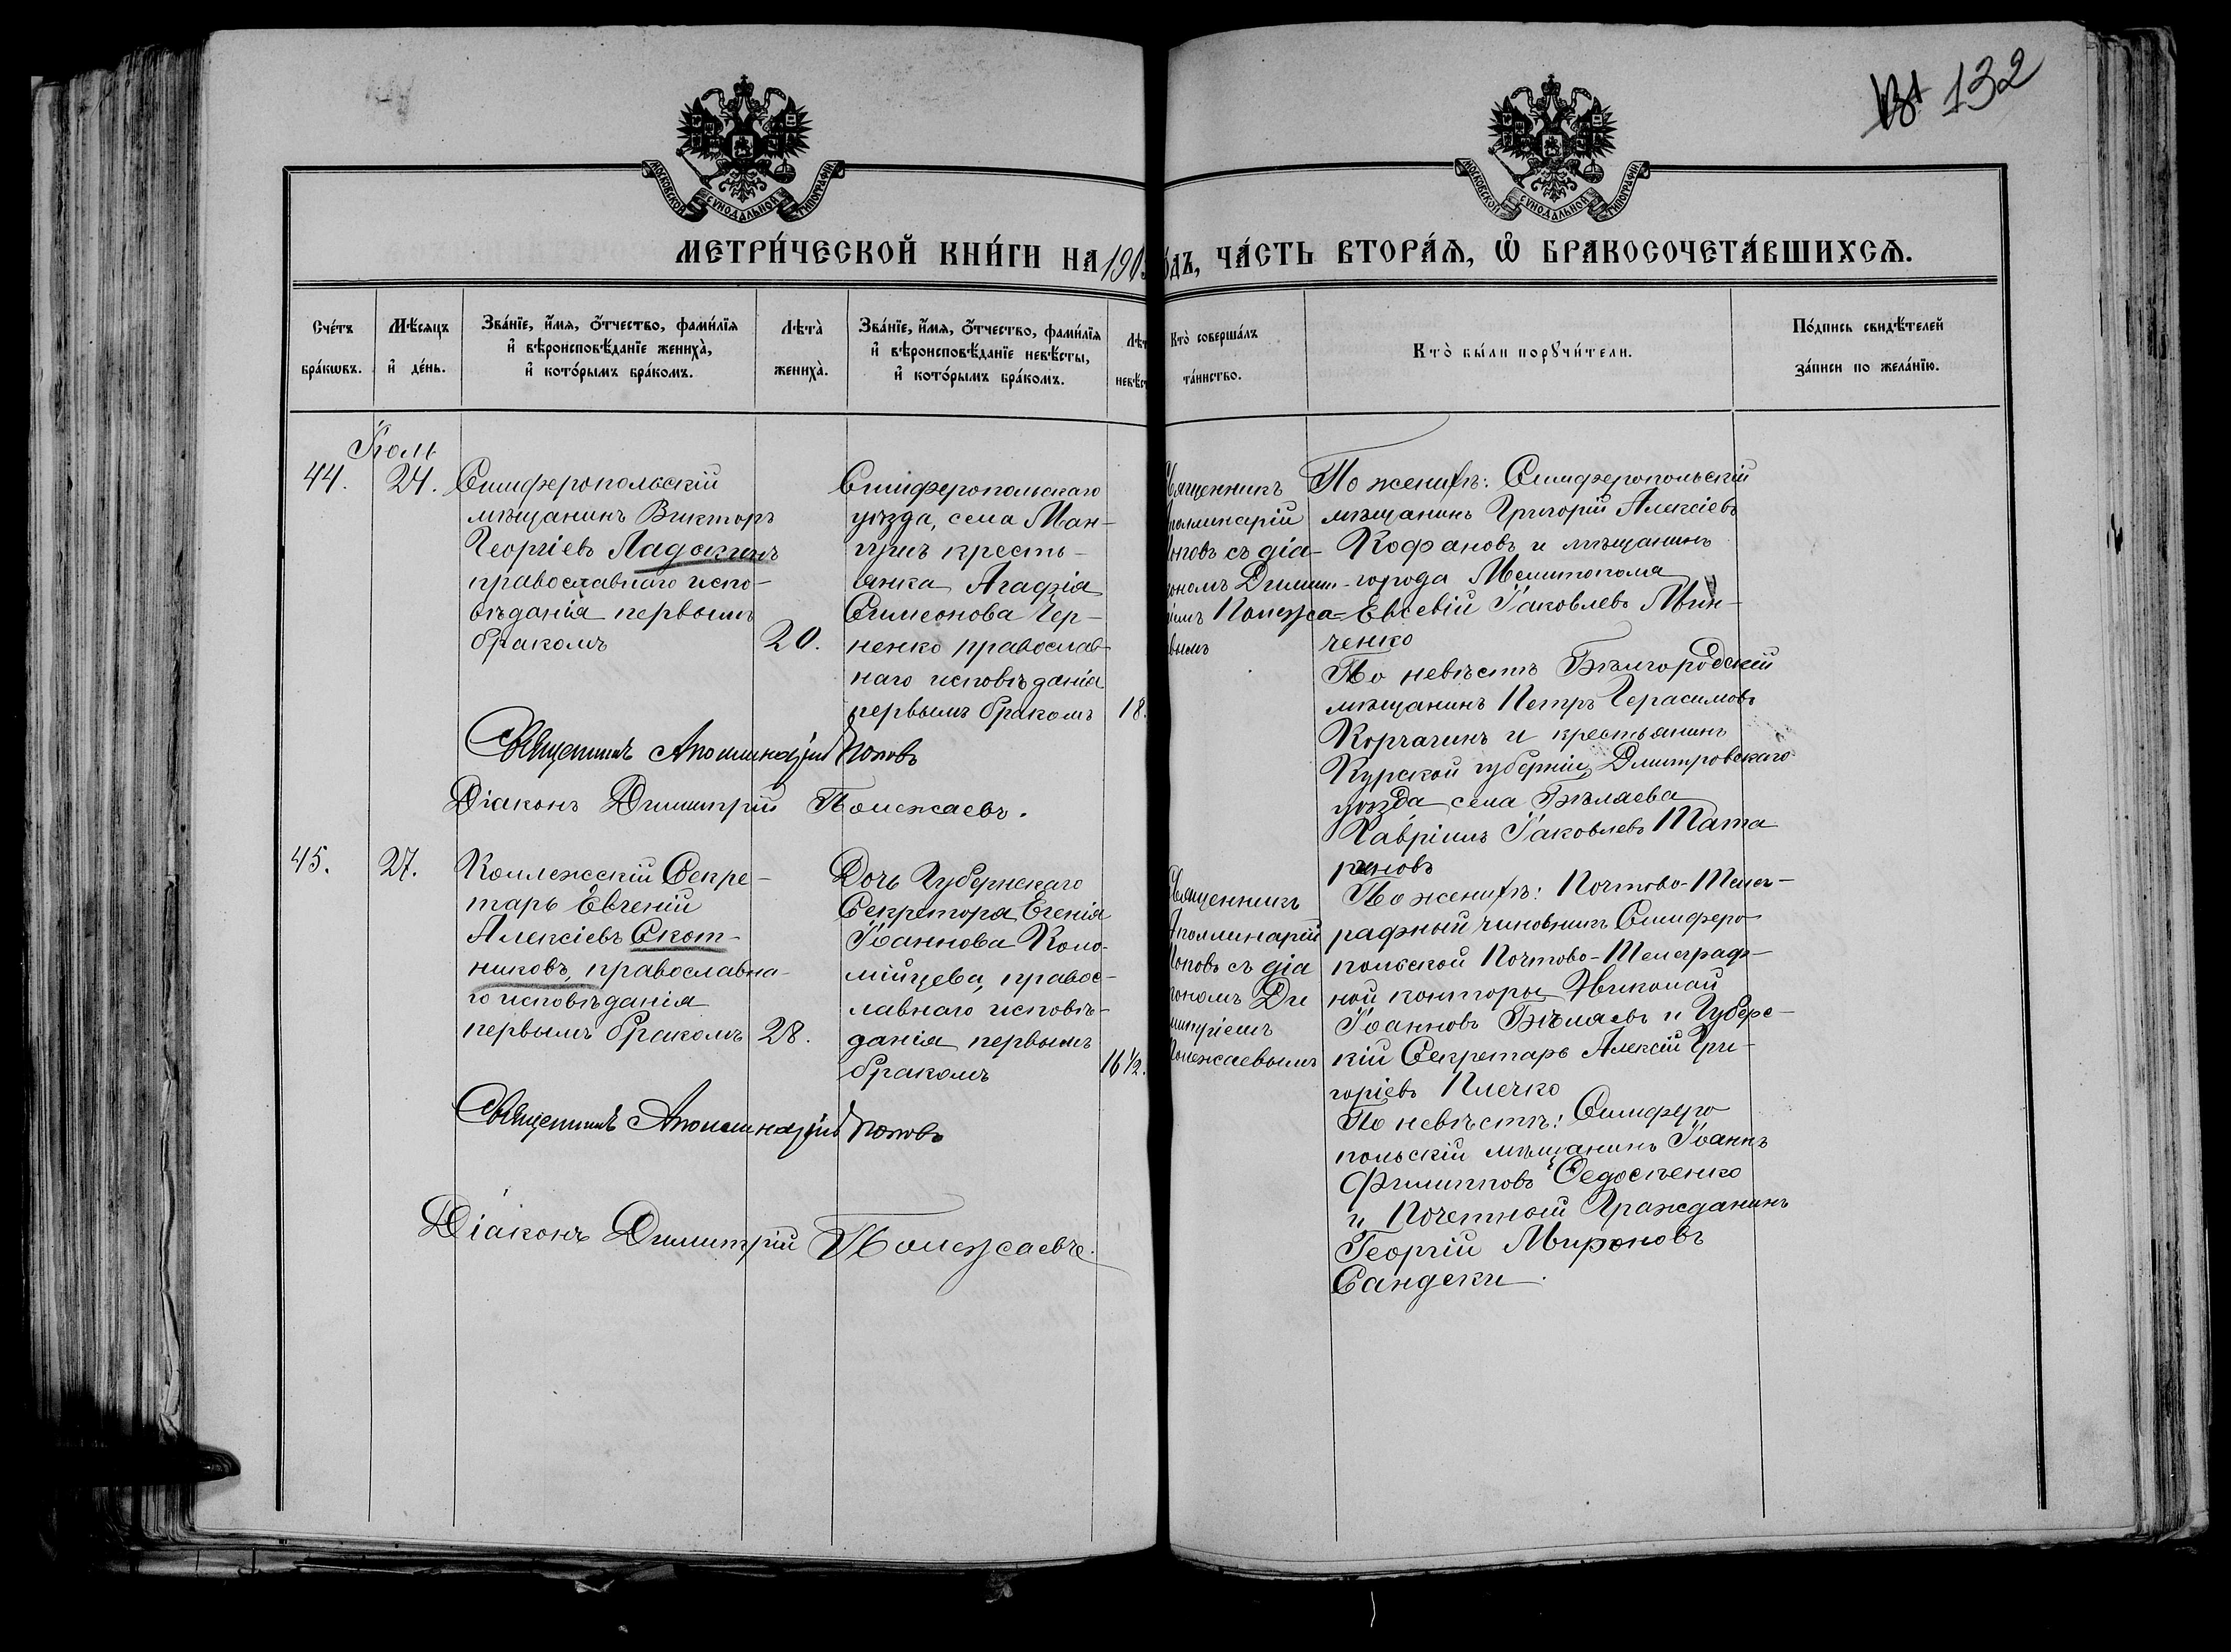 132
МОСКОВСКОЙ СѴНОДАЛЬНОЙ ТИПОГРАФІИ
МОСКОВСКОЙ СѴНОДАЛЬНОЙ ТИПОГРАФІИ
МЕТРИ́ЧЕСКОЙ КНИ́ГИ НА 190
О́ДЪ, ЧА́СТЬ ВТОРА́Ѧ, Ѡ҆ БРАКОСОЧЕТА́ВШИХСѦ.
Сче́тъ
бра́кѡвъ.
Мѣ́сяцъ
и҆ де́нь.
Зва́нїе, и҆́мя, ѻ҆́тчество, фами́лїя
и҆ вѣроисповѣ́данїе жениха̀,
и҆ кото́рымъ бра́комъ.
Лѣта̀
жениха̀.
Зва́нїе, и҆́мя, ѻ҆́тчество, фами́лїя
и҆ вѣроисповѣ́данїе невѣ́сты,
и҆ кото́рымъ бра́комъ.
Лѣт
невѣ́ст
Кто̀ соверша́лъ
та́инство.
Кто̀ бы́ли порꙋчи́тели.
По́дпись свидѣ́телей
за́писи по жела́нїю.
Іюль
44.
24.
Симферопольскій
мѣщанинъ Викторъ
Георгіевъ Ладокинъ
православнаго испо-
вѣданія первымъ
бракомъ
20.
Симферопольскаго
уѣзда, села Ман-
гушъ кресть-
янка Агафія
Симеонова Чер-
ненко православ-
наго исповѣданія
первымъ бракомъ
18.
Священникъ Аполлинарій Поповъ
Діаконъ Димитрій Полежаевъ.
вященникъ
поллинарій
оповъ съ діа-
кономъ Димит-
ріемъ Полежа=
вымъ
По женихѣ: Симферопольскій
мѣщанинъ Григорій Алексіевъ
Кофановъ и мѣщанинъ
города Мелитополя
Евсевій Іаковлевъ Мин-
ченко
По невѣстѣ Бѣлгородскій
мѣщанинъ Петръ Герасимовъ
Корчагинъ и крестьянинъ
Курской губерніи Дмитровскаго
уѣзда села Бѣляева
Гавріилъ Іаковлевъ Тата
риновъ
45.
27.
Коллежскій Секре-
тарь Евгеній
Алексіевъ Скот-
никовъ, православна-
го исповѣданія
первымъ бракомъ
28.
Дочь Губернскаго
Секретора Егенія
Іоаннова Коло-
мійцева, правос-
лавнаго исповѣ-
данія первымъ
бракомъ
16 1/2.
Священникъ Аполлинарій Поповъ
Діаконъ Димитрій Полежаевъ.
вященникъ
Аполлинарій
Поповъ съ діа
кономъ Ди
митріемъ
Полежаевымъ
По женихѣ: Почтово-Телег-
рафный чиновникъ Симферо-
польской Почтово-Телеграф-
ной конторы Николай
Іоанновъ Бѣляевъ и Губерс-
кій Секретарь Алексій Гри-
горіевъ Плечко
По невѣстѣ: Симферо
польскій мѣщанинъ Іоаннъ
Филипповъ Федосѣенко
и Почетной Гражданинъ
Георгій Мироновъ
Сандеки.